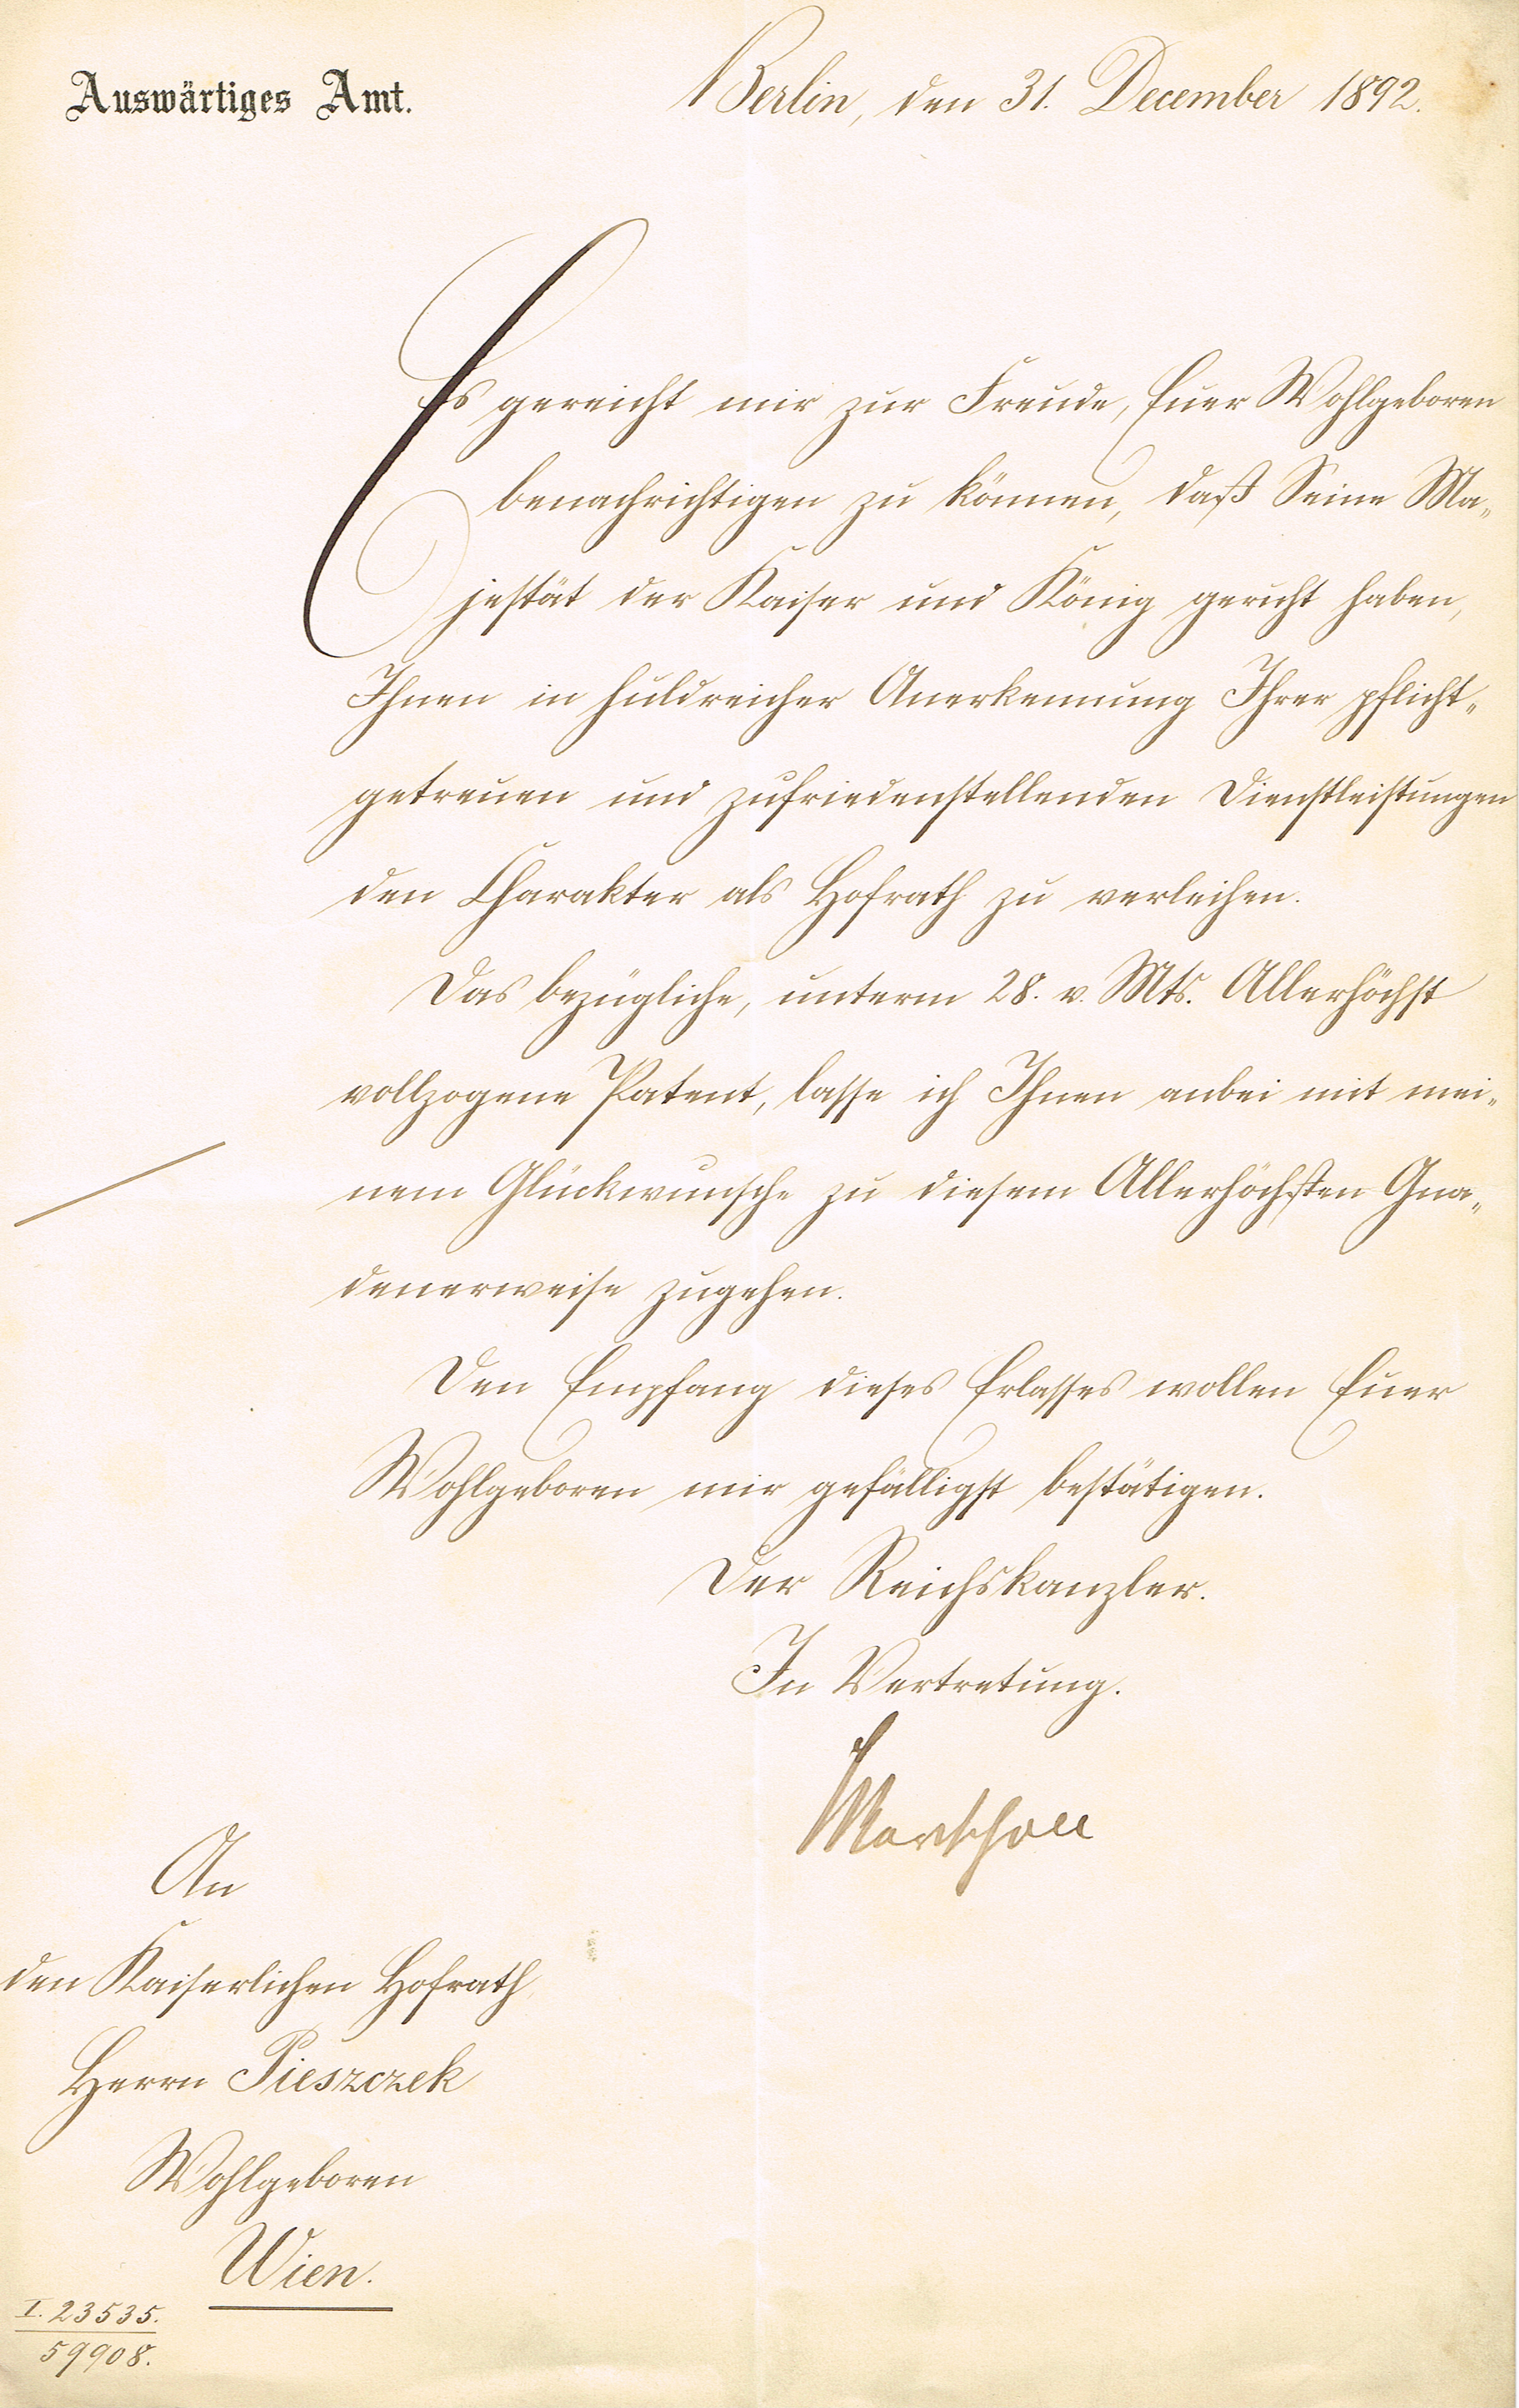 Auswärtiges Amt.
Berlin, den 31. December 1892.
Es gereicht mir zur Freude, Euer Wohlgeboren
benachrichtigen zu können, daß Seine Ma„
jestät der Kaiser und König geruht haben,
Ihnen in huldreicher Anerkennung Ihrer pflicht„
getreuen und zufriedenstellenden Dienstleistungen
den Charakter als Hofrath zu verleihen.
Das bezügliche, unterm 28. v. Mts. Allerhöchst
vollzogene Patent, lasse ich Ihnen anbei mit mei„
nem Glückwunsche zu diesem Allerhöchsten Gna„
denerweise zugehen.
Den Empfang dieses Erlasses wollen Euer
Wohlgeboren mir gefälligst bestätigen.
Der Reichskanzler.
In Vertretung.
Marschall
An
den Kaiserlichen Hofrath
Herrn Pieszczek
Wohlgeboren
Wien.
I. 23535.
59908.